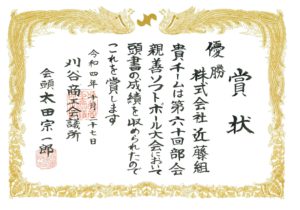 賞状
優勝
株式会社 近藤組
貴チームは第六十回部会
親善ソフトボール大会において
頭書の成績を収められたので
これを賞します
令和四年十月二十七日
刈谷商工会議所
会頭 太田宗一郎